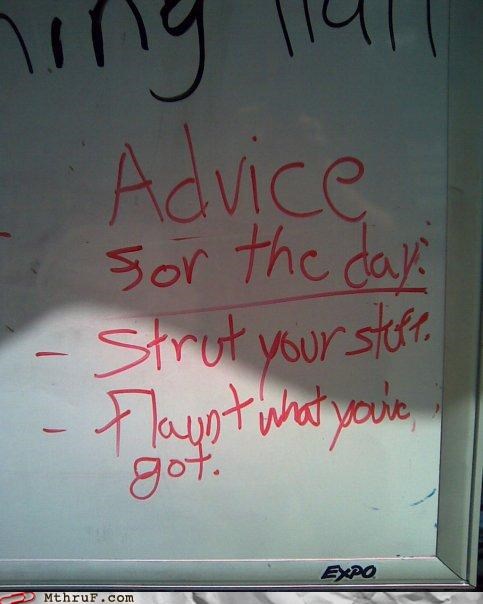 Advice
for the day:
- Strut your stuff.
- Flaunt what you've
got.
EXPO
MThruF.com